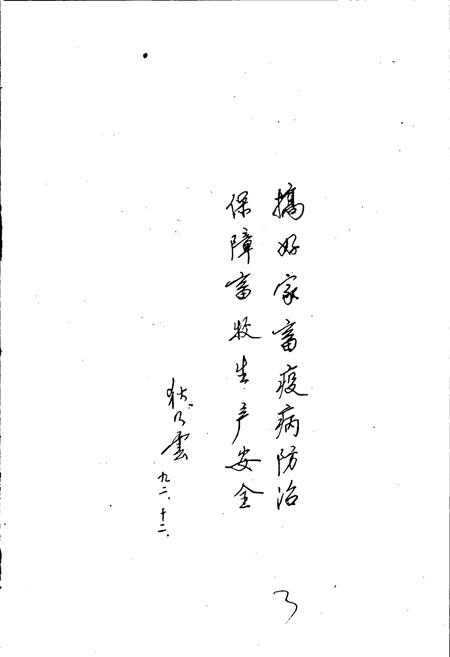 搞好家畜疫病防治
保障畜牧生产安全
狄乃云
九二、十二、
3